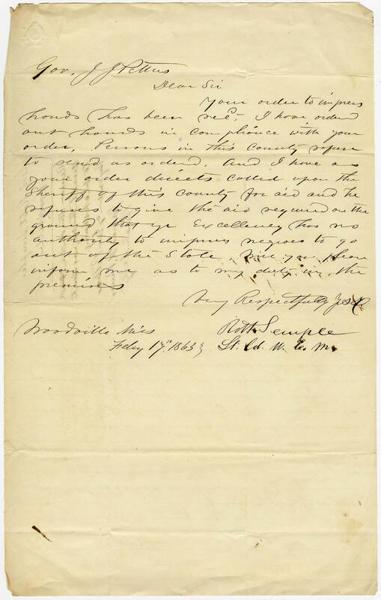 Gov. J J Pettus
Dear Sir
Your order to impress
hands has been recd. I have orderd
out hands in compliance with your
order, Persons in this county refuse
to send as orderd. And I have as
your order directs called upon the
Sheriff of this county for aid and he
refuses to give the aid required on the
ground that yr Excellency has no
authority to impress negroes to go
out of the State. you please
inform me as to my duty in the
premises
Very Respectfully
Woodville Miss
Feby 17th 1863
Robt Semple
Lt. Col. W. C. M.